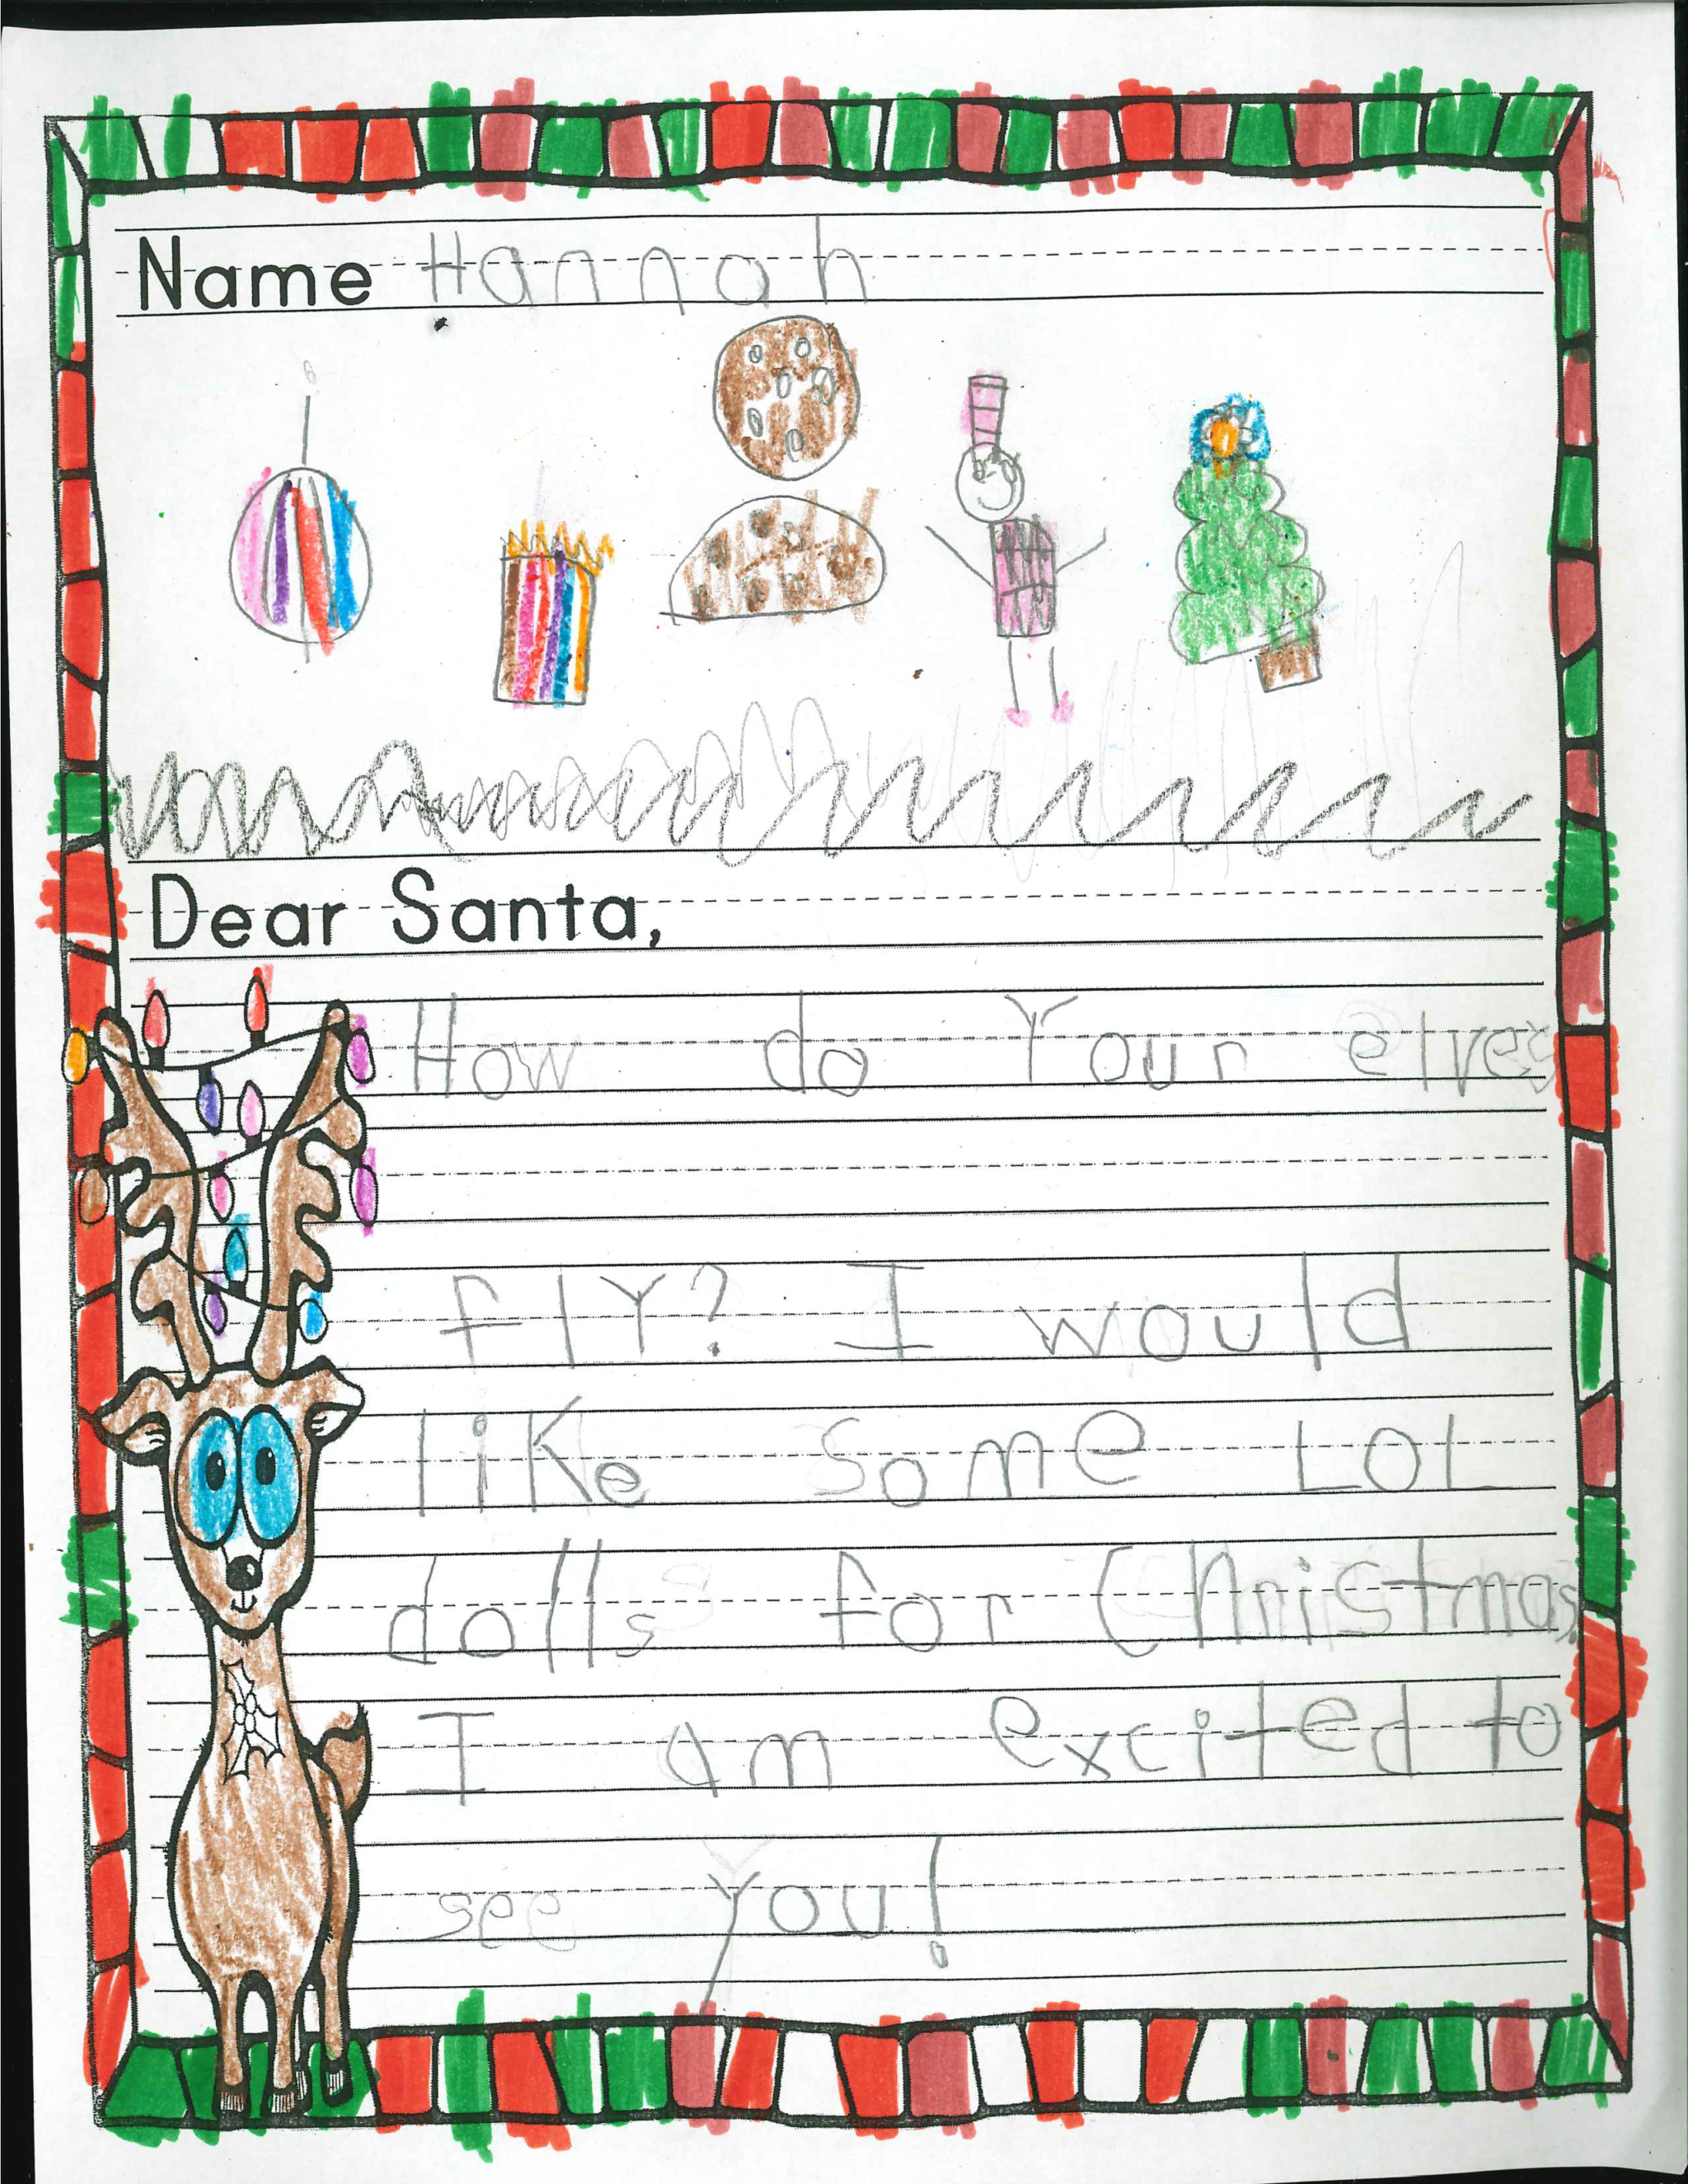 Name Hannah
Dear Santa,
How do Your elves
flY? I would
liKe some LOL
dolls for Christmas.
I am excited to
see You!